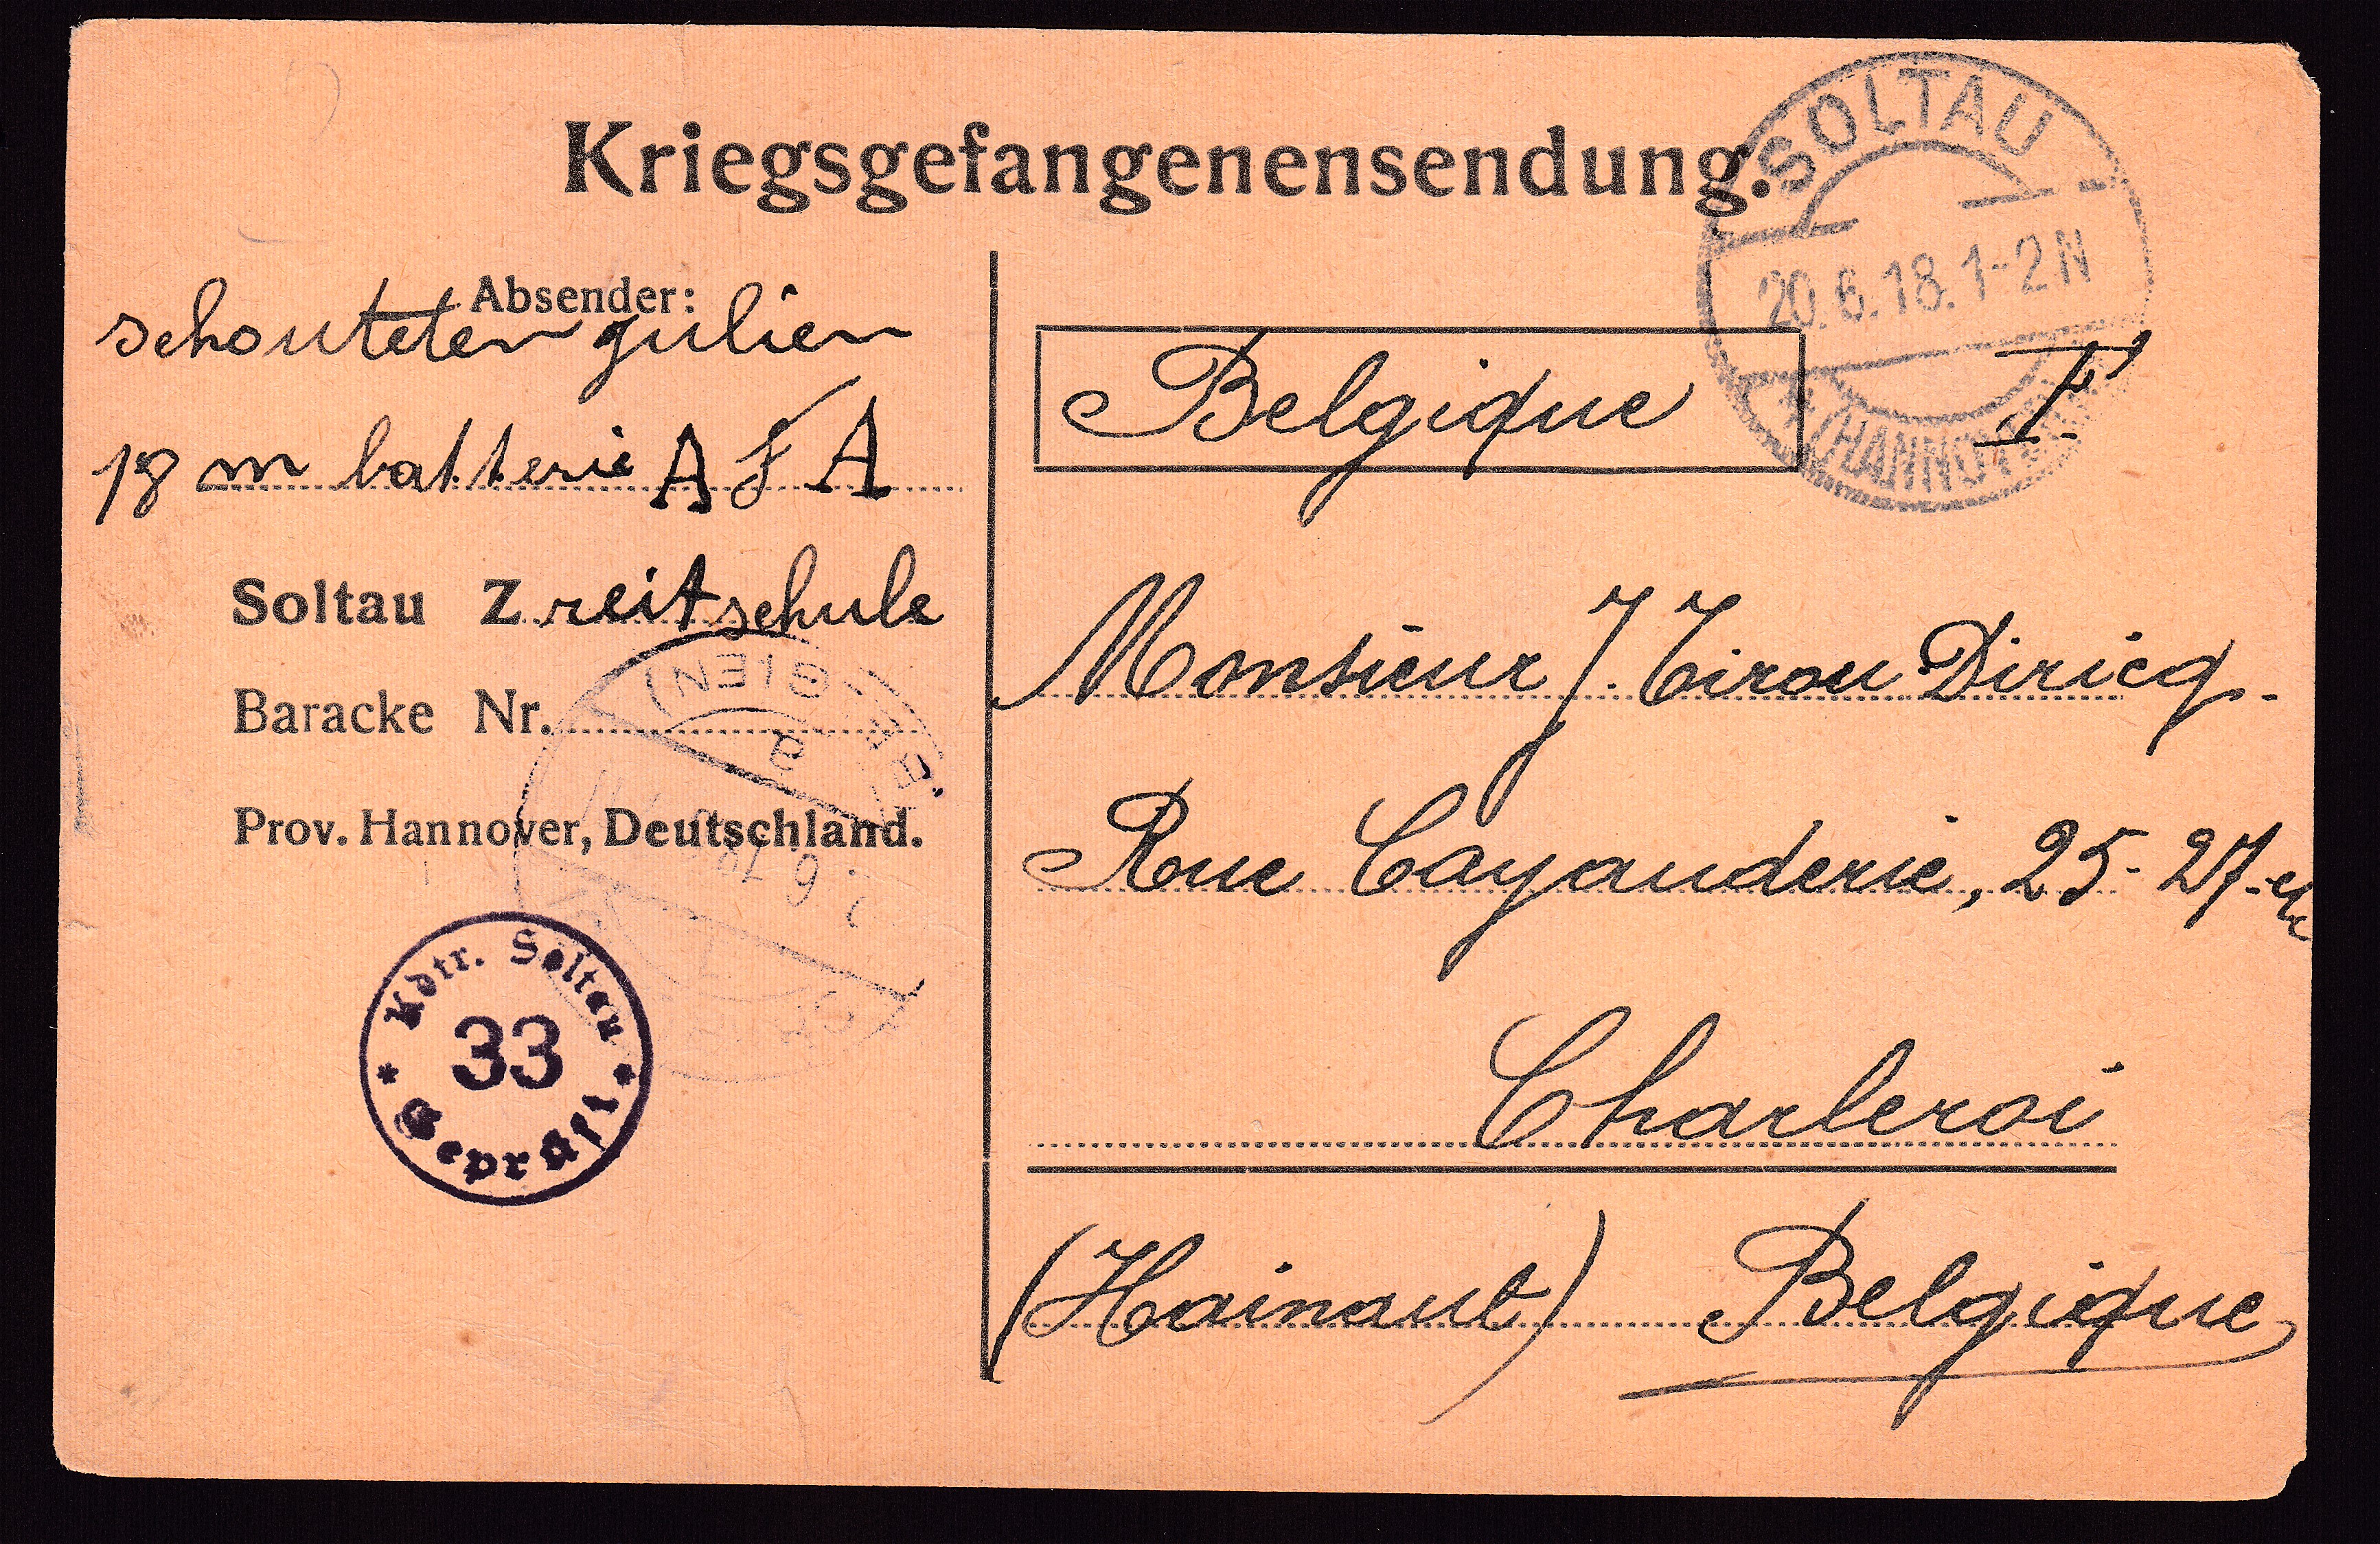 Kriegsgefangenensendung.
SOLTAU
20.6.18. 1-2 N
(HANNOVER)
Absender:
schouteten julien
18 m batterie A F A
Soltau Z reitschule
Baracke Nr.
Prov. Hannover, Deutschland.
Kdtr. Soltau
33
Geprüft
Belgique
Monsieur J. Tirou-Diricq.
Rue Cayauderie, 25-27
Charleroi
(Hainaut) Belgique